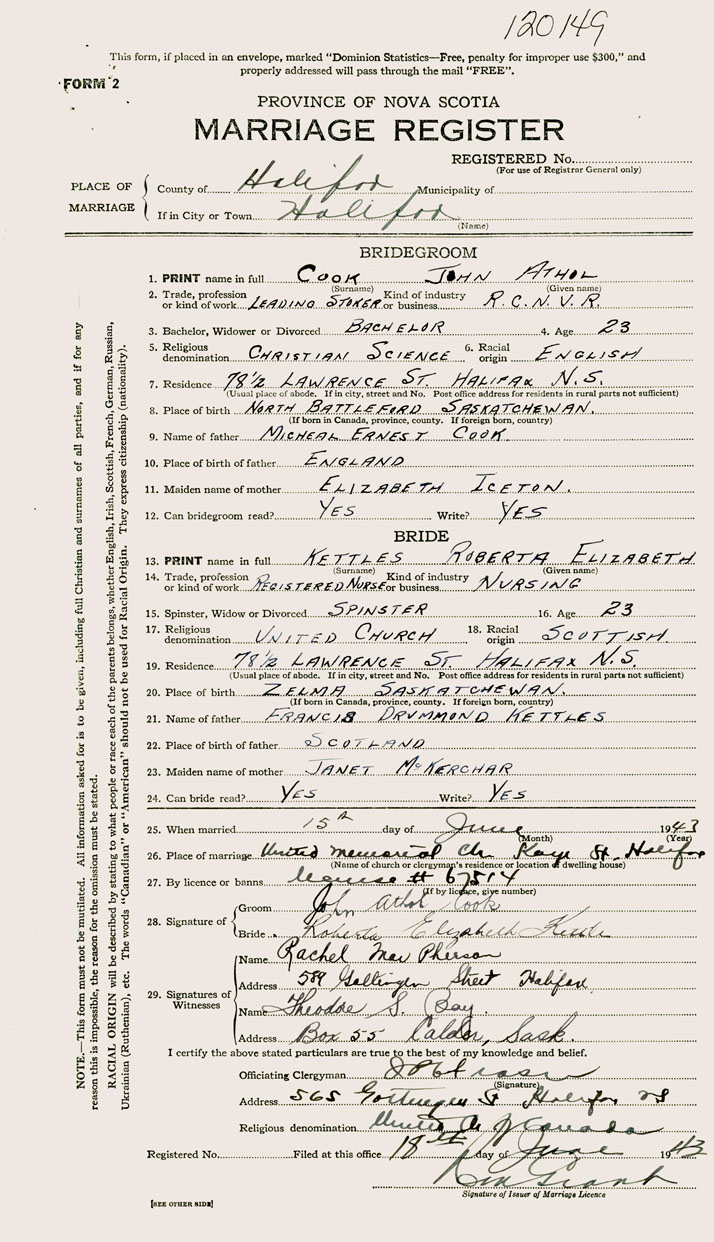 120149
This form, if placed in an envelope, marked "Dominion Statistics—Free, penalty for improper use $300," and
properly addressed will pass through the mail "FREE".
FORM 2
PROVINCE OF NOVA SCOTIA
MARRIAGE REGISTER
REGISTERED No.
(For use of Registrar General only)
PLACE OF MARRIAGE
County of Halifax Municipality of
If in City or Town Halifax
(Name)
BRIDEGROOM
1. PRINT name in full COOK JOHN ATHOL
(Surname) (Given name)
2. Trade, profession or kind of work LEADING STOKER Kind of industry or business R.C.N.V.R.
3. Bachelor, Widower or Divorced BACHELOR 4. Age 23
5. Religious denomination CHRISTIAN SCIENCE 6. Racial origin ENGLISH
7. Residence 78 1/2 LAWRENCE ST. HALIFAX N.S.
(Usual place of abode. If in city, street and No. Post office address for residents in rural parts not sufficient)
8. Place of birth NORTH BATTLEFORD SASKATCHEWAN.
(If born in Canada, province, county. If foreign born, country)
9. Name of father MICHEAL ERNEST COOK.
10. Place of birth of father ENGLAND
11. Maiden name of mother ELIZABETH ICETON.
12. Can bridegroom read? YES Write? YES
BRIDE
13. PRINT name in full KETTLES ROBERTA ELIZABETH
(Surname) (Given name)
14. Trade, profession or kind of work REGISTERED NURSE Kind of industry or business NURSING
15. Spinster, Widow or Divorced SPINSTER 16. Age 23
17. Religious denomination UNITED CHURCH 18. Racial origin SCOTTISH.
19. Residence 78 1/2 LAWRENCE ST. HALIFAX N.S.
(Usual place of abode. If in city, street and No. Post office address for residents in rural parts not sufficient)
20. Place of birth ZELMA SASKATCHEWAN.
(If born in Canada, province, county. If foreign born, country)
21. Name of father FRANCIS DRUMMOND KETTLES
22. Place of birth of father SCOTLAND
23. Maiden name of mother JANET McKERCHAR
24. Can bride read? YES Write? YES
25. When married 15th day of June 1943
(Month) (Year)
26. Place of marriage United Memorial Ch Kaye St. Halifax
(Name of church or clergyman's residence or location of dwelling house)
27. By licence or banns license # 67514
(If by licence, give number)
28. Signature of
Groom John Athol Cook
Bride Roberta Elizabeth Kettles
29. Signatures of Witnesses
Name Rachel MacPherson
Address 589 Gottingen Street Halifax
Name Theodore S. Bay.
Address Box 55 Calder, Sask.
I certify the above stated particulars are true to the best of my knowledge and belief.
Officiating Clergyman
(Signature)
Address 565 Gottingen St Halifax NS
Religious denomination United Ch of Canada
Registered No. Filed at this office 18th day of June 1943
Grant
Signature of Issuer of Marriage Licence
[SEE OTHER SIDE]
NOTE.—This form must not be mutilated. All information asked for is to be given, including full Christian and surnames of all parties, and if for any
reason this is impossible, the reason for the omission must be stated.
RACIAL ORIGIN will be described by stating to what people or race each of the parents belongs, whether English, Irish, Scottish, French, German, Russian,
Ukrainian (Ruthenian), etc. The words "Canadian" or "American" should not be used for Racial Origin. They express citizenship (nationality).